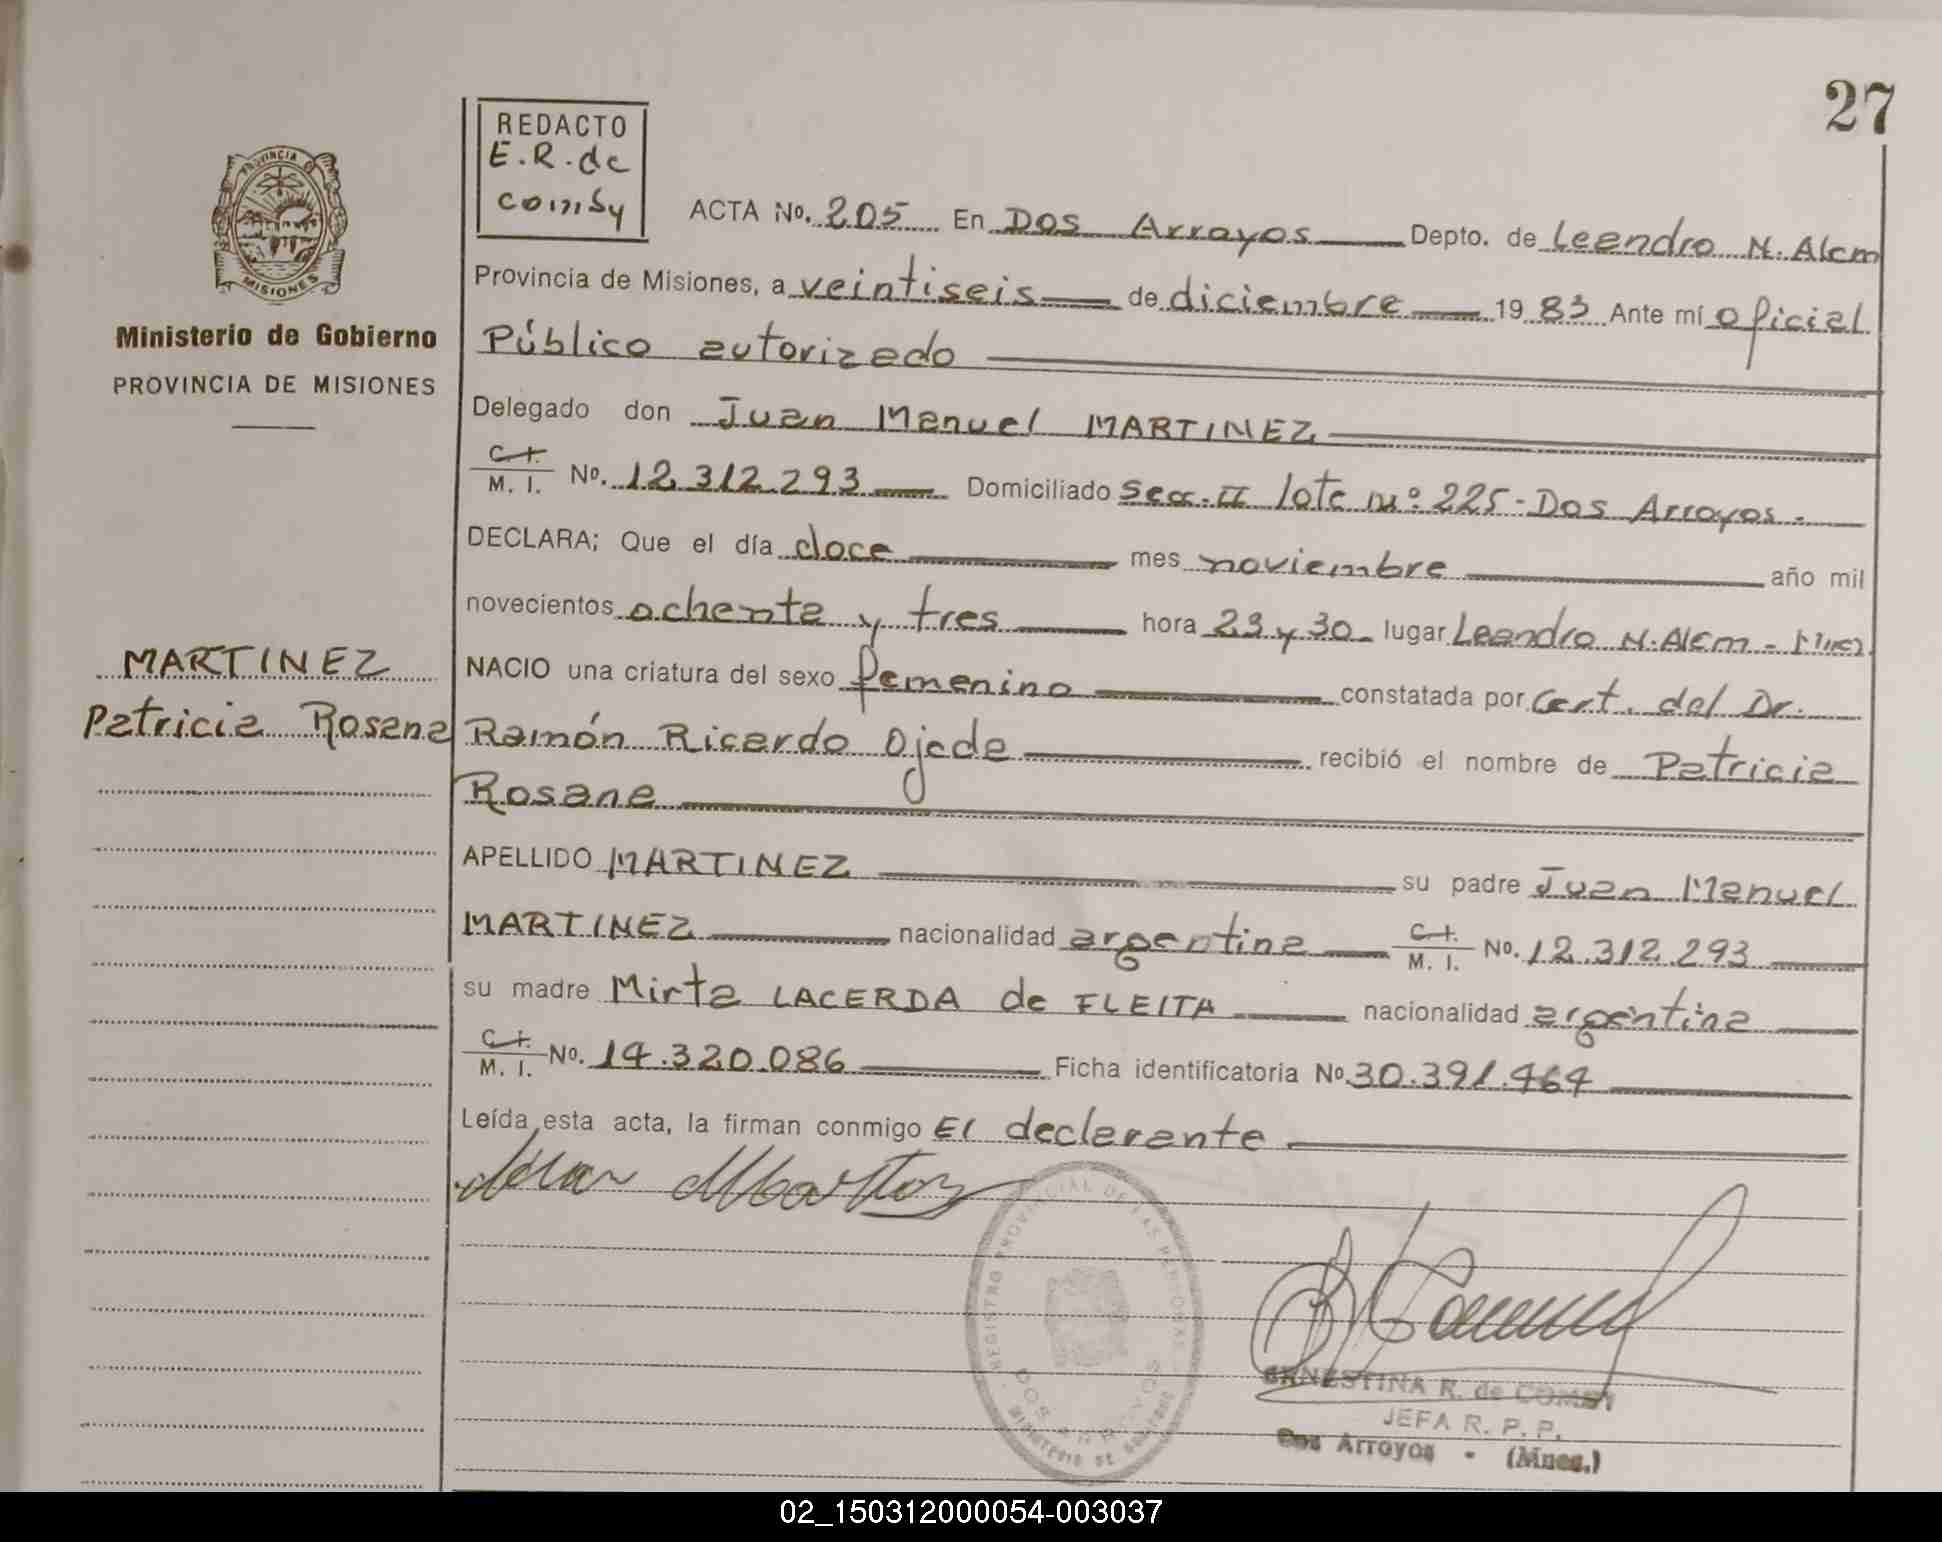 27
REDACTO
E.R. de
comsy
PROVINCIA DE
MISIONES
Ministerio de Gobierno
PROVINCIA DE MISIONES
MARTINEZ
Patricia Rosana
ACTA Nº. 205 En Dos Arroyos Depto. de Leandro N. Alem
Provincia de Misiones, a veintiseis de diciembre 1983 Ante mí oficial
Público autorizado
Delegado don Juan Manuel MARTINEZ
C. I.
M. I. Nº. 12.312.293 Domiciliado Secc. II lote nº 225 - Dos Arroyos.
DECLARA; Que el día doce mes noviembre año mil
novecientos ochenta y tres hora 23 y 30 lugar Leandro N. Alem -
NACIO una criatura del sexo femenino constatada por Cert. del Dr.
Ramón Ricardo Ojeda recibió el nombre de Patricia
Rosana
APELLIDO MARTINEZ su padre Juan Manuel
MARTINEZ nacionalidad argentina C. I.
M. I. Nº. 12.312.293
su madre Mirta LACERDA de FLEITA nacionalidad argentina
C. I.
M. I. Nº. 14.320.086 Ficha identificatoria Nº 30.391.464
Leída esta acta, la firman conmigo El declarante
REGISTRO PROVINCIAL DE LAS PERSONAS
DOS ARROYOS
MINISTERIO DE GOBIERNO
ERNESTINA R. de COMSY
JEFA R. P. P.
Dos Arroyos - (Mnes.)
02_150312000054-003037